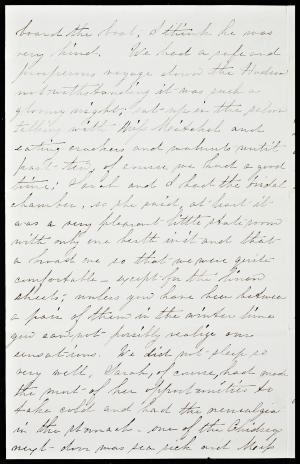 board the boat; I think he was
very kind. We had a safe and
prosperous voyage down the Hudson
notwithstanding it was such a
gloomy night; sat up in the saloon
talking with Miss Mitchel and
eating crackers and walnuts until
past ten, of course we had a good
time; Sarah and I had the bridal
chamber, so she said, at least it
was a very pleasant little state room
with only one berth in it and that
a broad one so that we were quite
comfortable – except for the linen
sheets; unless you have been between
a pair of them in the winter time
you can not possibly realize our
sensations. We did not sleep so
very well, Sarah, of course, had made
the most of her opportunities to
take cold and had the neuralgia
in the stomach – one of the
next door was sea sick and Miss